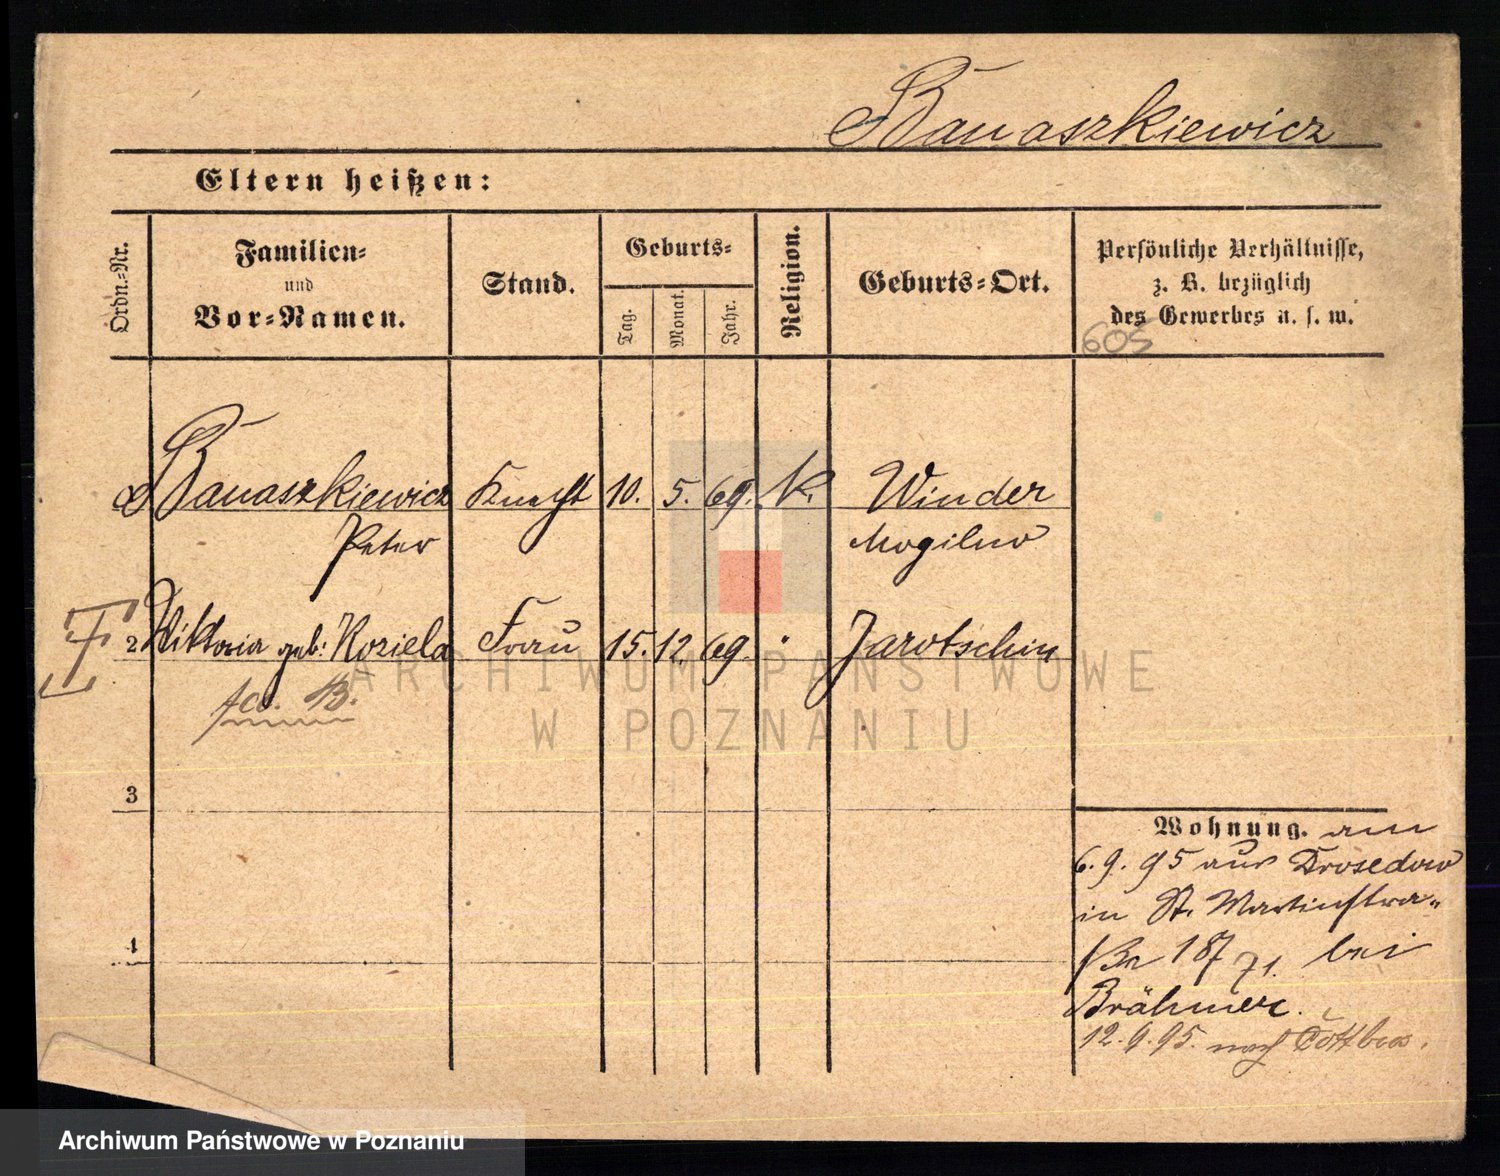 Banaszkiewicz
Eltern heißen:
Ordn.-Nr.
Familien-
und
Vor-Namen.
Stand.
Geburts-
Tag.
Monat.
Jahr.
Religion.
Geburts-Ort.
Persönliche Verhältnisse,
z. B. bezüglich
des Gewerbes u. s. w.
605
Banaszkiewicz Knecht 10. 5. 69. K. Winder
Peter Mogilno
2 Wiktoria geb: Koziela Frau 15. 12. 69. Jarotschin
B.
3
4
Wohnung. am
6. 9. 95 aus Drosedow
in St. Martinstra-
187 71. bei
Brähmer.
12. 9. 95. nach Cottbus.
ARCHIWUM PAŃSTWOWE
W POZNANIU
Archiwum Państwowe w Poznaniu